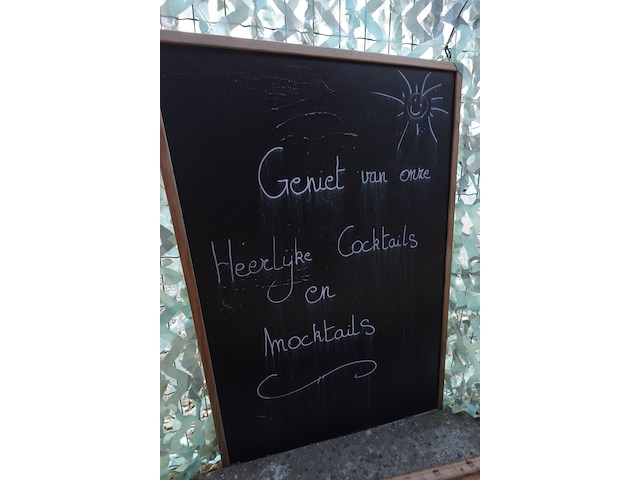 Geniet van onze
Heerlijke Cocktails
en
Mocktails